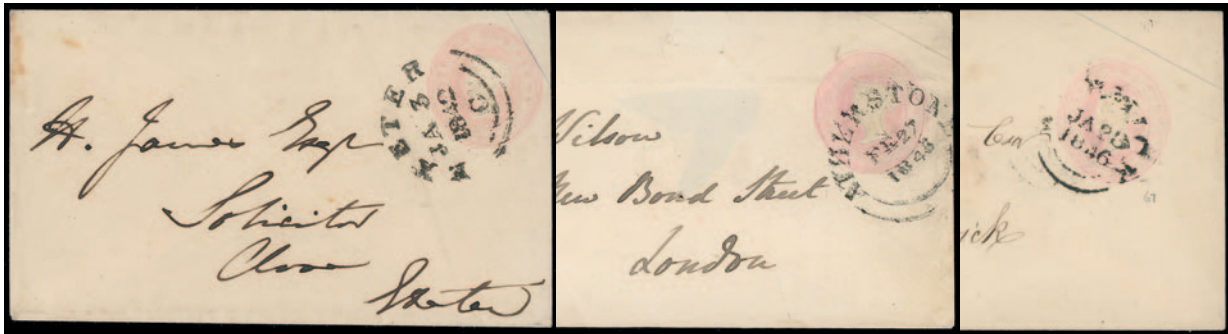 H. James Esqr
Solicitor
Close
Exeter
EXETER
JA 3
1842
C
Wilson
New Bond Street
London
ATHERSTONE
FE 25
1843
Esq
ick
JA 28
1846